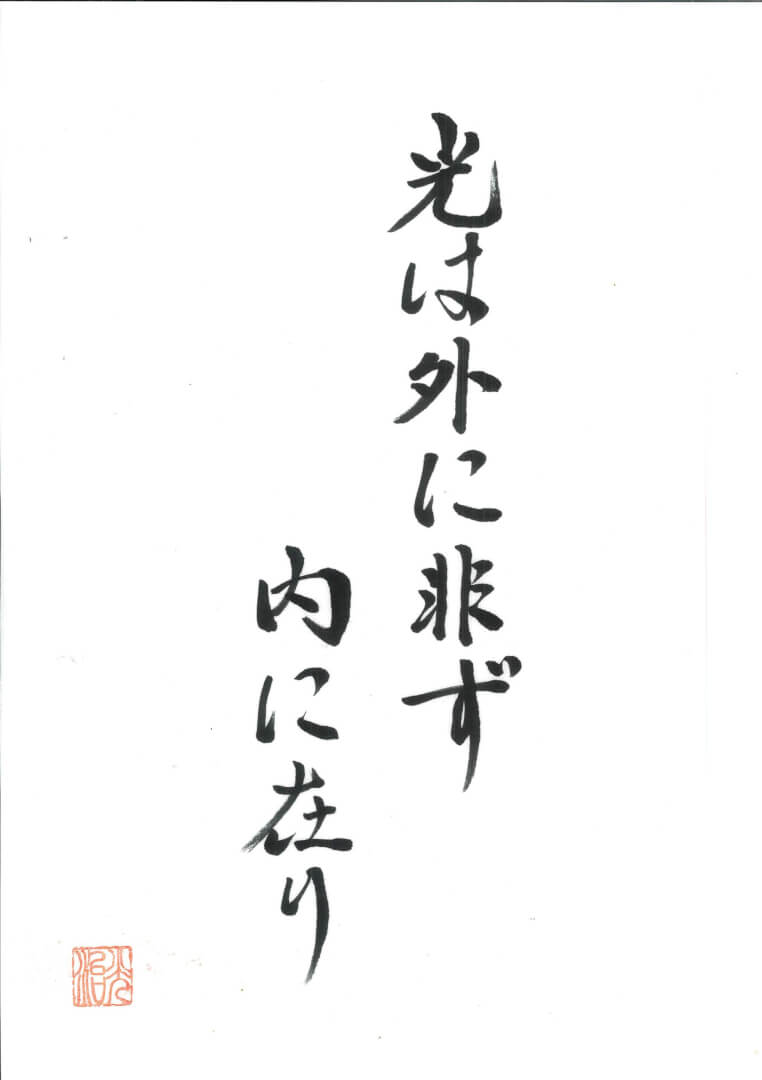 光は外に非ず
内に在り